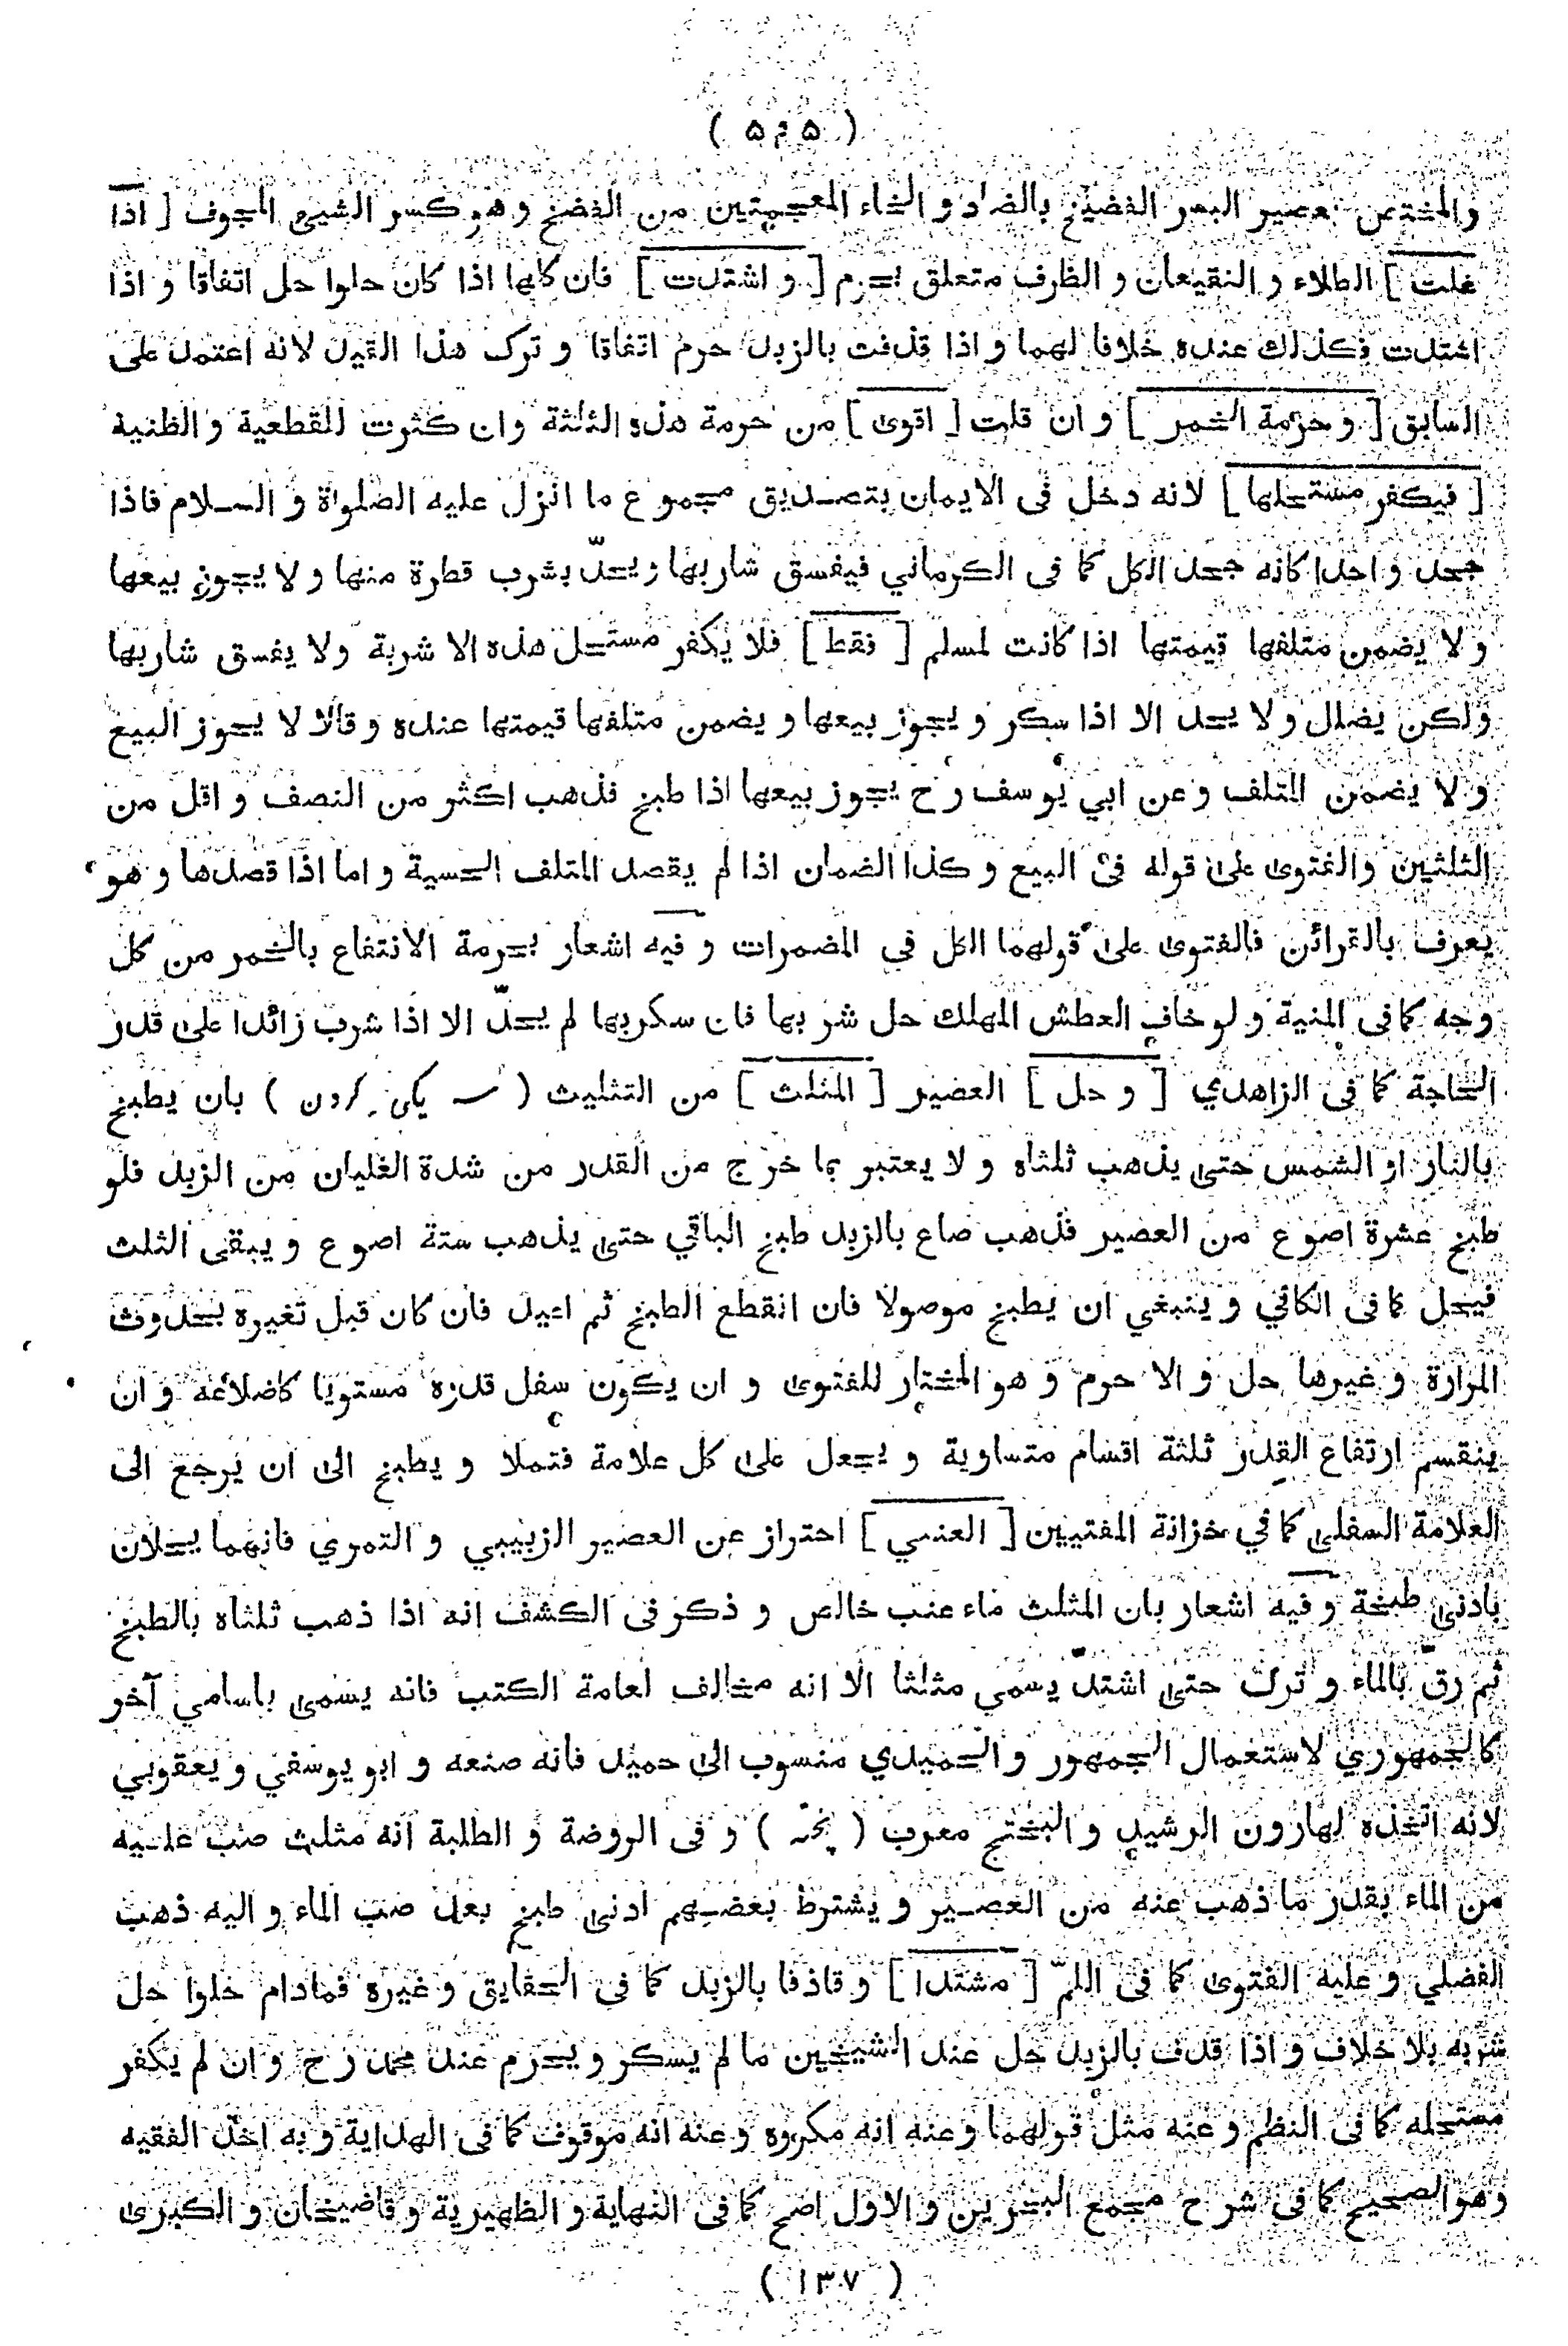 ( ۵۴۵ )
والمختص بعصير البسر الفضيخ بالضاد و الخاء المعجمتين من الفضخ و هو كسر الشيئ المجوف [ اذا
غلت ] الطلاء و النقيعان و الظرف متعلق بحرم [ و اشتدت ] فان كلها اذا كان حلوا حل اتفاقا و اذا
اشتدت فكذلك عنده خلافا لهما و اذا قذفت بالزبد حرم اتفاقا و ترك هذا القيد لانه اعتمد على
السابق [ و حرمة الخمر ] و ان قلت [ اقوى ] من حرمة هذه الثلثة وان كثرت للقطعية و الظنية
[ فيكفر مستحلها ] لانه دخل فى الايمان بتصديق مجموع ما انزل عليه الصلواة و السلام فاذا
جحد واحدا كانه جحد الكل كما فى الكرماني فيفسق شاربها ويحدّ بشرب قطرة منها و لا يجوز بيعها
ولا يضمن متلفها قيمتها اذا كانت لمسلم [ فقط ] فلا يكفر مستحل هذه الاشربة ولا يفسق شاربها
ولكن يضلل ولا يحد الا اذا سكر و يجوز بيعها و يضمن متلفها قيمتها عنده و قالا لا يجوز البيع
و لا يضمن المتلف وعن ابي يوسف رح يجوز بيعها اذا طبخ فذهب اكثر من النصف و اقل من
الثلثين والفتوى على قوله فى البيع و كذا الضمان اذا لم يقصد المتلف الحسبة و اما اذا قصدها و هو
يعرف بالقرائن فالفتوى على قولهما الكل في المضمرات و فيه اشعار بحرمة الانتفاع بالخمر من كل
وجه كما فى المنية و لو خاف العطش المهلك حل شربها فان سكر بها لم يحدّ الا اذا شرب زائدا على قدر
الحاجة كما فى الزاهدي [ و حل ] العصير [ المثلث ] من التثليث ( سه يكى كردن ) بان يطبخ
بالنار او الشمس حتى يذهب ثلثاه و لا يعتبر بما خرج من القدر من شدة الغليان من الزبد فلو
طبخ عشرة اصوع من العصير فذهب صاع بالزبد طبخ الباقي حتى يذهب ستة اصوع و يبقى الثلث
فيحل كما فى الكافي و ينبغي ان يطبخ موصولا فان انقطع الطبخ ثم اعيد فان كان قبل تغيره بحدوث
المرارة و غيرها حل و الا حرم و هو المختار للفتوى و ان يكون سفل قدره مستويا كاضلاعه و ان
ينقسم ارتفاع القدر ثلثة اقسام متساوية و يجعل على كل علامة فتملا و يطبخ الى ان يرجع الى
العلامة السفلى كما في خزانة المفتيين [ العنبي ] احتراز عن العصير الزبيبي و التمري فانهما يحلان
بادنى طبخة و فيه اشعار بان المثلث ماء عنب خالص و ذكر فى الكشف انه اذا ذهب ثلثاه بالطبخ
ثم رقّ بالماء و ترك حتى اشتدّ يسمى مثلثا الا انه مخالف لعامة الكتب فانه يسمى باسامي آخر
كالجمهوري لاستعمال الجمهور و الحميدي منسوب الى حميد فانه صنعه و ابو يوسفي و يعقوبي
لانه اتخذه لهارون الرشيد و البختج معرب ( پخته ) و فى الروضة و الطلبة انه مثلث صب عليه
من الماء بقدر ما ذهب عنه من العصير و يشترط بعضهم ادنى طبخ بعد صب الماء و اليه ذهب
الفضلي و عليه الفتوى كما فى اللمّ [ مشتدا ] و قاذفا بالزبد كما فى الحقايق و غيره فمادام حلوا حل
شربه بلا خلاف و اذا قذف بالزبد حل عند الشيخين ما لم يسكر و يحرم عند محمد رح و ان لم يكفر
مستحله كما فى النظم و عنه مثل قولهما و عنه انه مكروه و عنه انه موقوف كما فى الهداية و به اخذ الفقيه
وهو الصحيح كما فى شرح مجمع البحرين و الاول اصح كما فى النهاية و الظهيرية و قاضيخان و الكبرى
( ۱۳۷ )